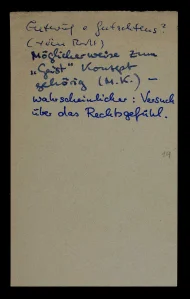 Entwurf e Gutachtens?
(
Möglicherweise zum
„Geist" Konzept
gehörig (M.K.) –
wahrscheinlicher: Versuch
über das Rechtsgefühl.